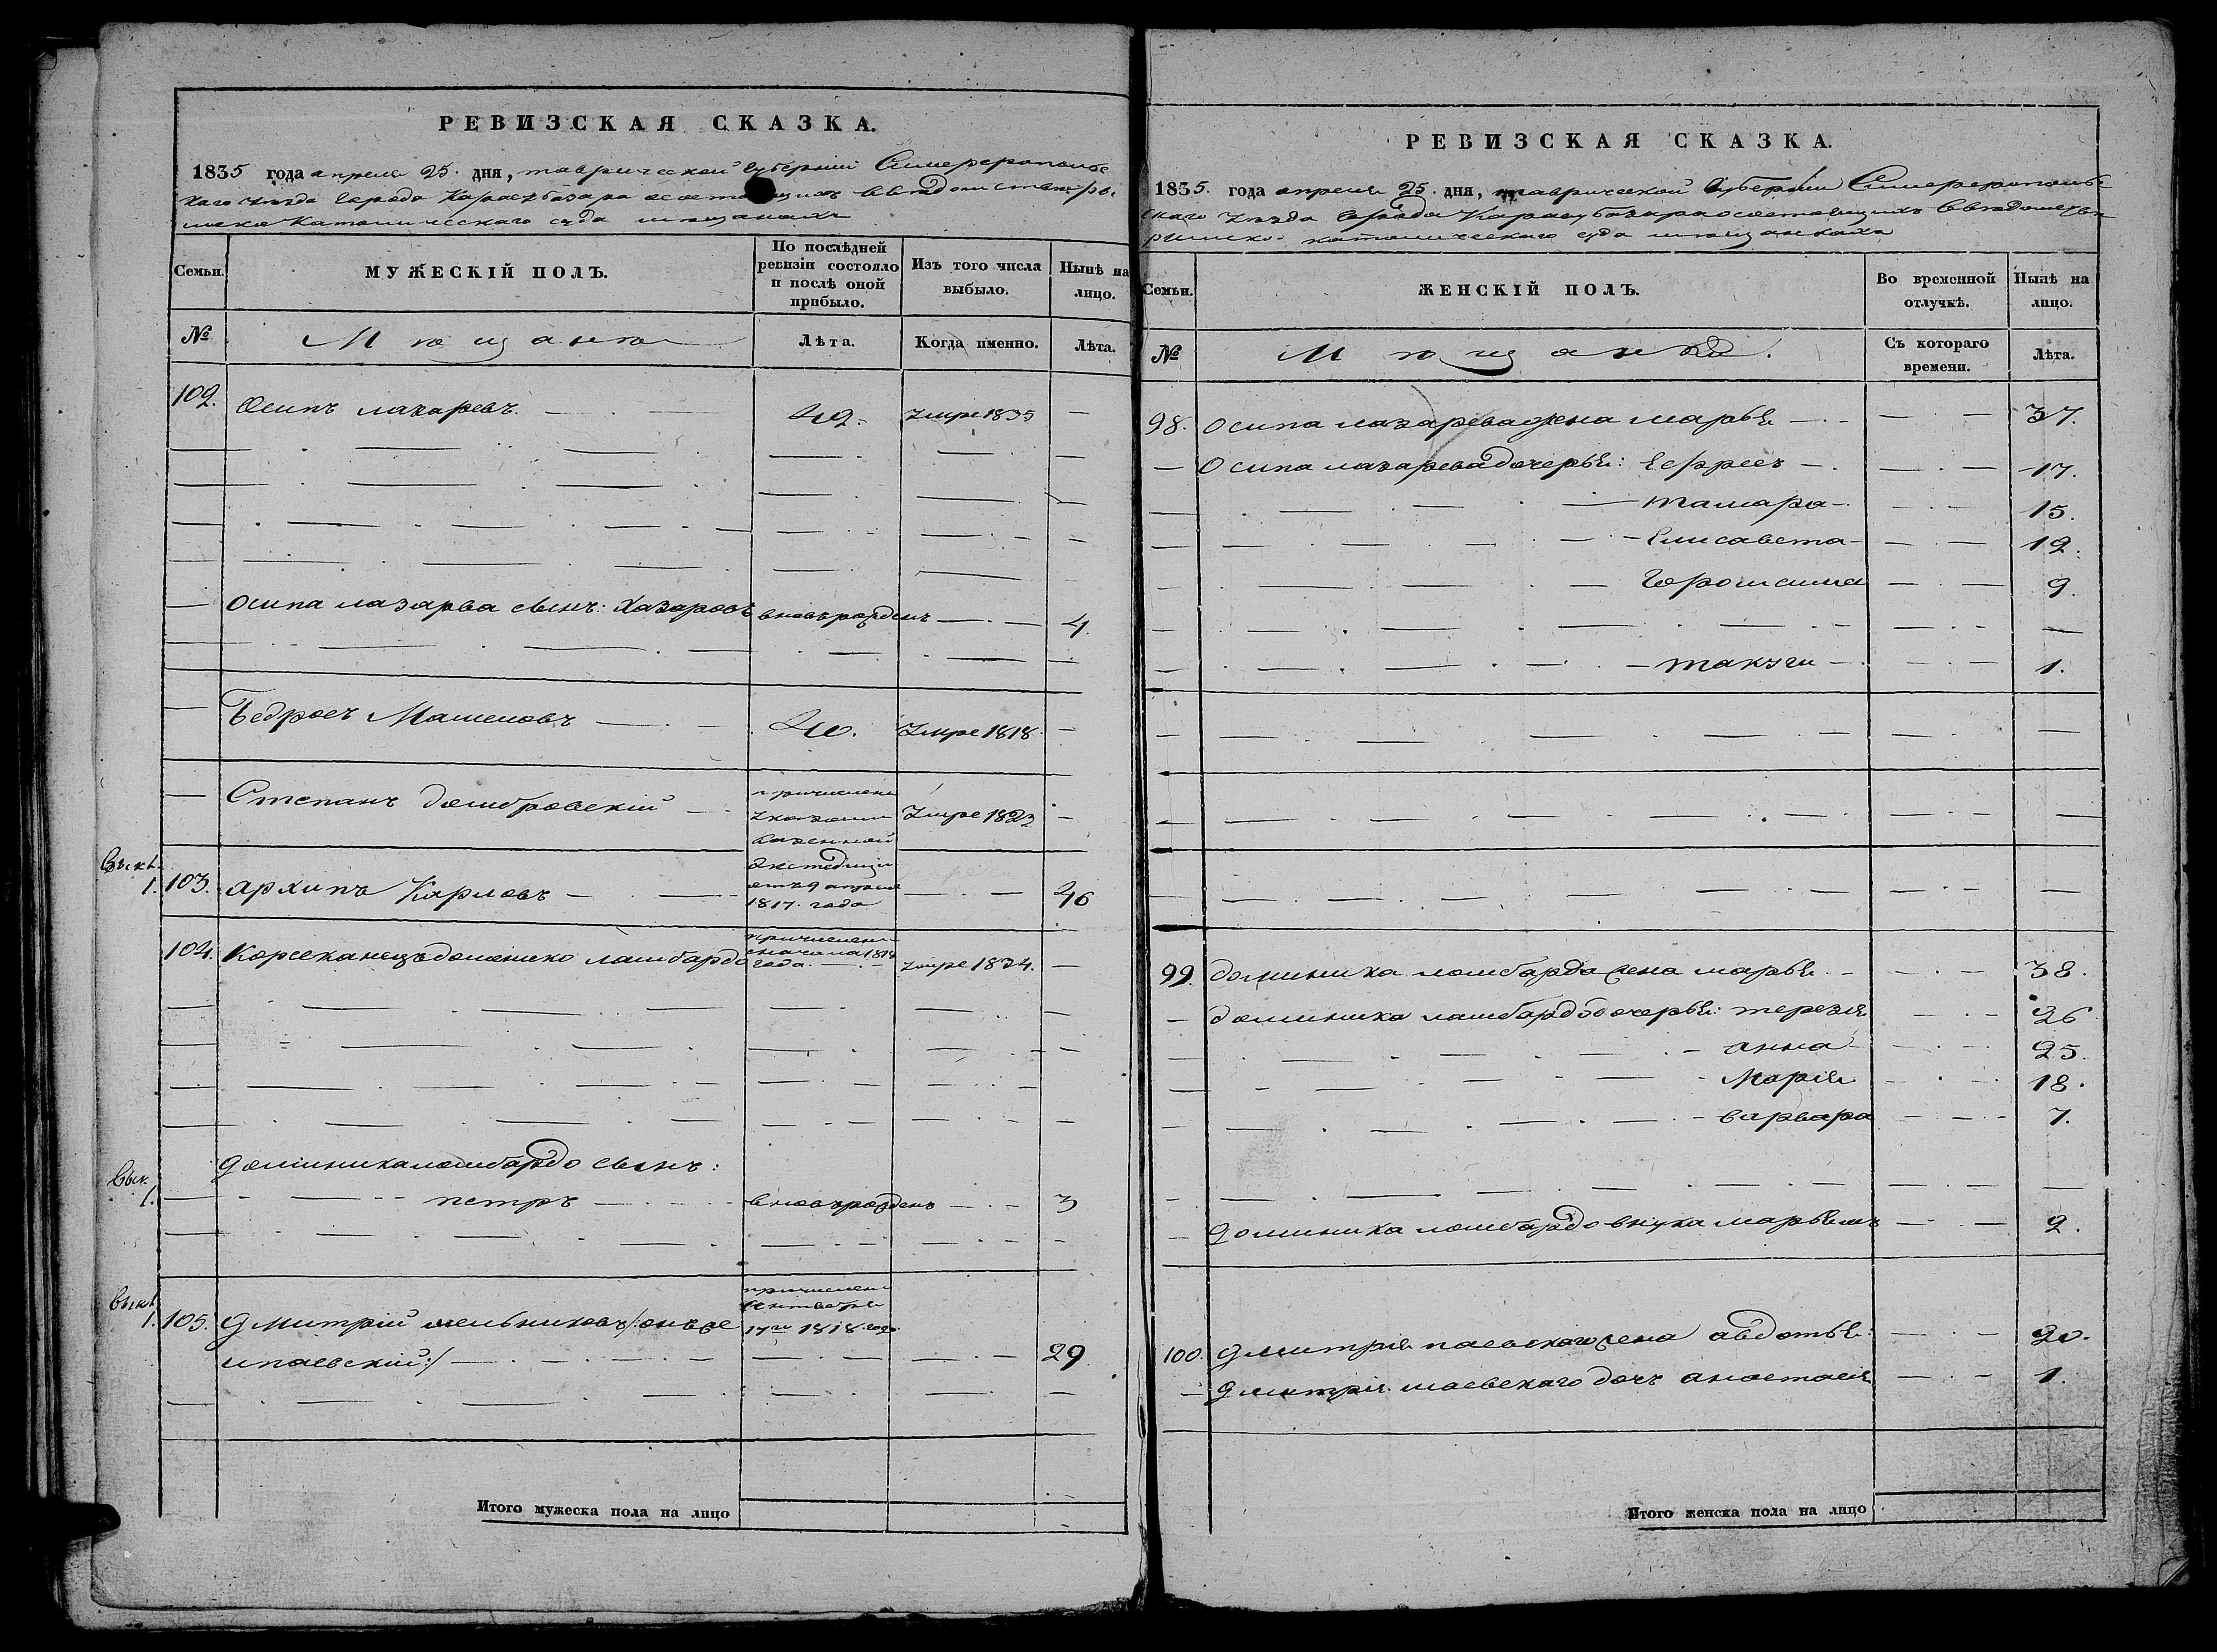 РЕВИЗСКАЯ СКАЗКА.
1835 года апреля 25. дня, таврической губернiи Симферополь
скаго уезда города Карасубазара состоящихъ
католическаго суда мещанахъ
Семьи.
МУЖЕСКІЙ ПОЛЪ.
По послѣдней ревизіи состояло и послѣ оной прибыло.
Изъ того числа выбыло.
Нынѣ на лицо.
№
Мѣщане
Лѣта.
Когда именно.
Лѣта.
102. Осипъ лазаревъ. 42. умре 1835
Осипа лазарва сынъ: Хазаросъ вновьрожденъ 4.
Бедросъ 40. умре 1818
Степанъ домбровскій причисленъ умре 1823
указомъ
казенной
экспедиціи
1. 103. архипъ Карповъ отъ 9 апреля 46
1817. года
104. Корсеканецъ доменико ломбардо причисленъ сначала 1818 года умре 1834.
доминика ломбардо сынъ:
1. петръ вновьрожденъ 3
1. 105. дмитрій мельниковъ /: онъ же причисленъ сентября 17го 1818. года
и паевскій :/ 29
Итого мужеска пола на лицо
РЕВИЗСКАЯ СКАЗКА.
1835. года апреля 25. дня, таврической губерніи Симферополь
скаго уезда города Карасубазара состоящихъ
римско-католическаго суда мещанкахъ
Семьи.
ЖЕНСКІЙ ПОЛЪ.
Во временной отлучкѣ.
Нынѣ на лицо.
№
Мѣщанки.
Съ котораго времени.
Лѣта.
98. Осипа лазарева жена марья 37.
Осипа лазарева дочерья: 17.
тамара 15.
Елисавета 12.
9.
такуги 1.
99. доминика ломбардо жена марья. 38.
доминика ломбардо дочерья: терезія 26
анна 25.
Марія 18.
варвара 7.
доминика ломбардо внука марьямъ 2.
100. дмитрія паевскаго жена авдотья 20.
дмитрія паевскаго дочъ анастасія 1.
Итого женска пола на лицо